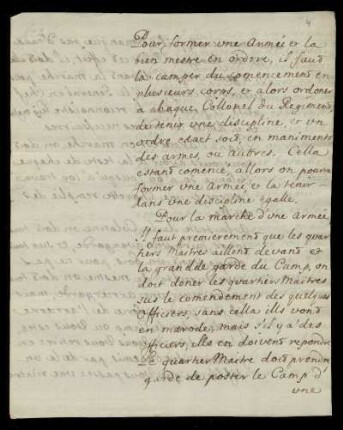 4
Pour former une Armée et la
bien mestre en ordre, il faud
la camper du comencement en
plusieurs corps, et alors ordoner
à chaque Collonel du Regiment
de tenir une discipline, et un
ordre exact soit, en maniments
des armes ou autres. Cella
estant comencé, allors on pourra
former une Armée et la tenir
dans une discipline egalle.
Pour la marche d'une Armée
Il faut premierement que les quar
tiers Maitres aillent devant et
la grandde garde du Camp, on
doit doner les quartier Maitres
sus le comendement des quelques
Officiers, sans cella ills vont
en marode, mais s'il y a des
officiers, ills en doivent repondre
Le quartier Maitre doit prendre
garde de poster le Camp d'
une